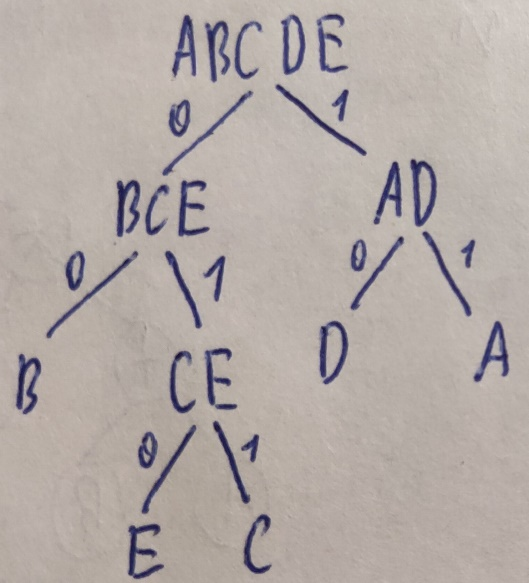 ABCDE
0 1
BCE AD
0 1 0 1
B CE D A
0 1
E C